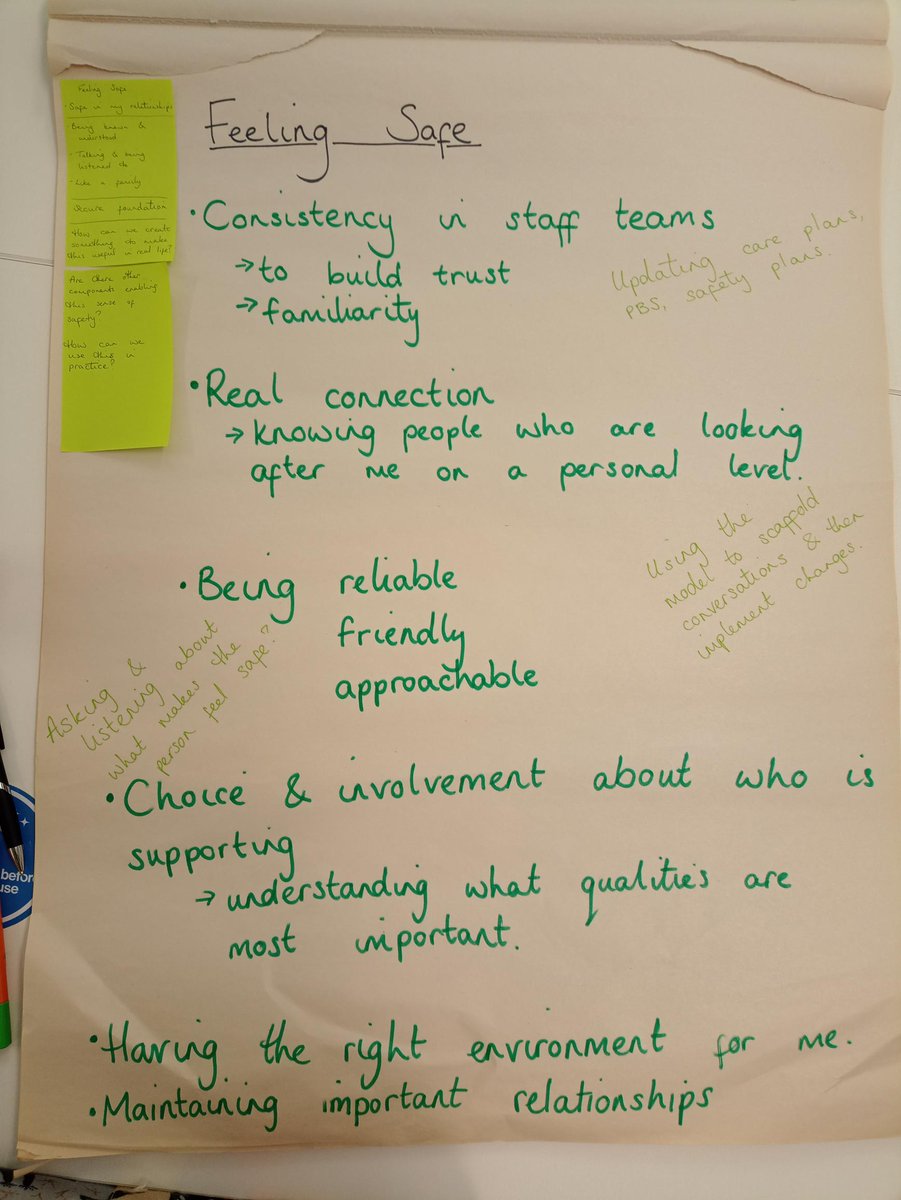 Feeling Safe
· Safe in my relationships
Being known &
understood
· Talking & being
listened to
- Like a family
Secure foundation
How can we create
something to make
this useful in real life?
Are there other
components enabling
this sense of
safety?
How can we
use this in
practice?
Feeling Safe
· Consistency in staff teams
→ to build trust
→ familiarity
Updating care plans,
PBS, safety plans.
· Real connection
→ Knowing people who are looking
after me on a personal level.
Using the
model to scaffold
conversations & then
implement changes.
· Being reliable
friendly
approachable
Asking &
listening about
what makes the
person feel safe?
· Choice & involvement about who is
supporting
→ understanding what qualities are
most important.
· Having the right environment for me.
· Maintaining important relationships
before
use